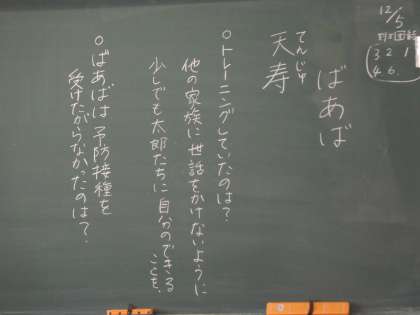 12/5
3 2 1
4. 6.
ばあば
てんじゅ
天寿
○トレーニングしていたのは？
他の家族に世話をかけないように
少しでも太郎たちに自分のできる
ことを、
○ばあばは予防接種を
受けたがらなかったのは？